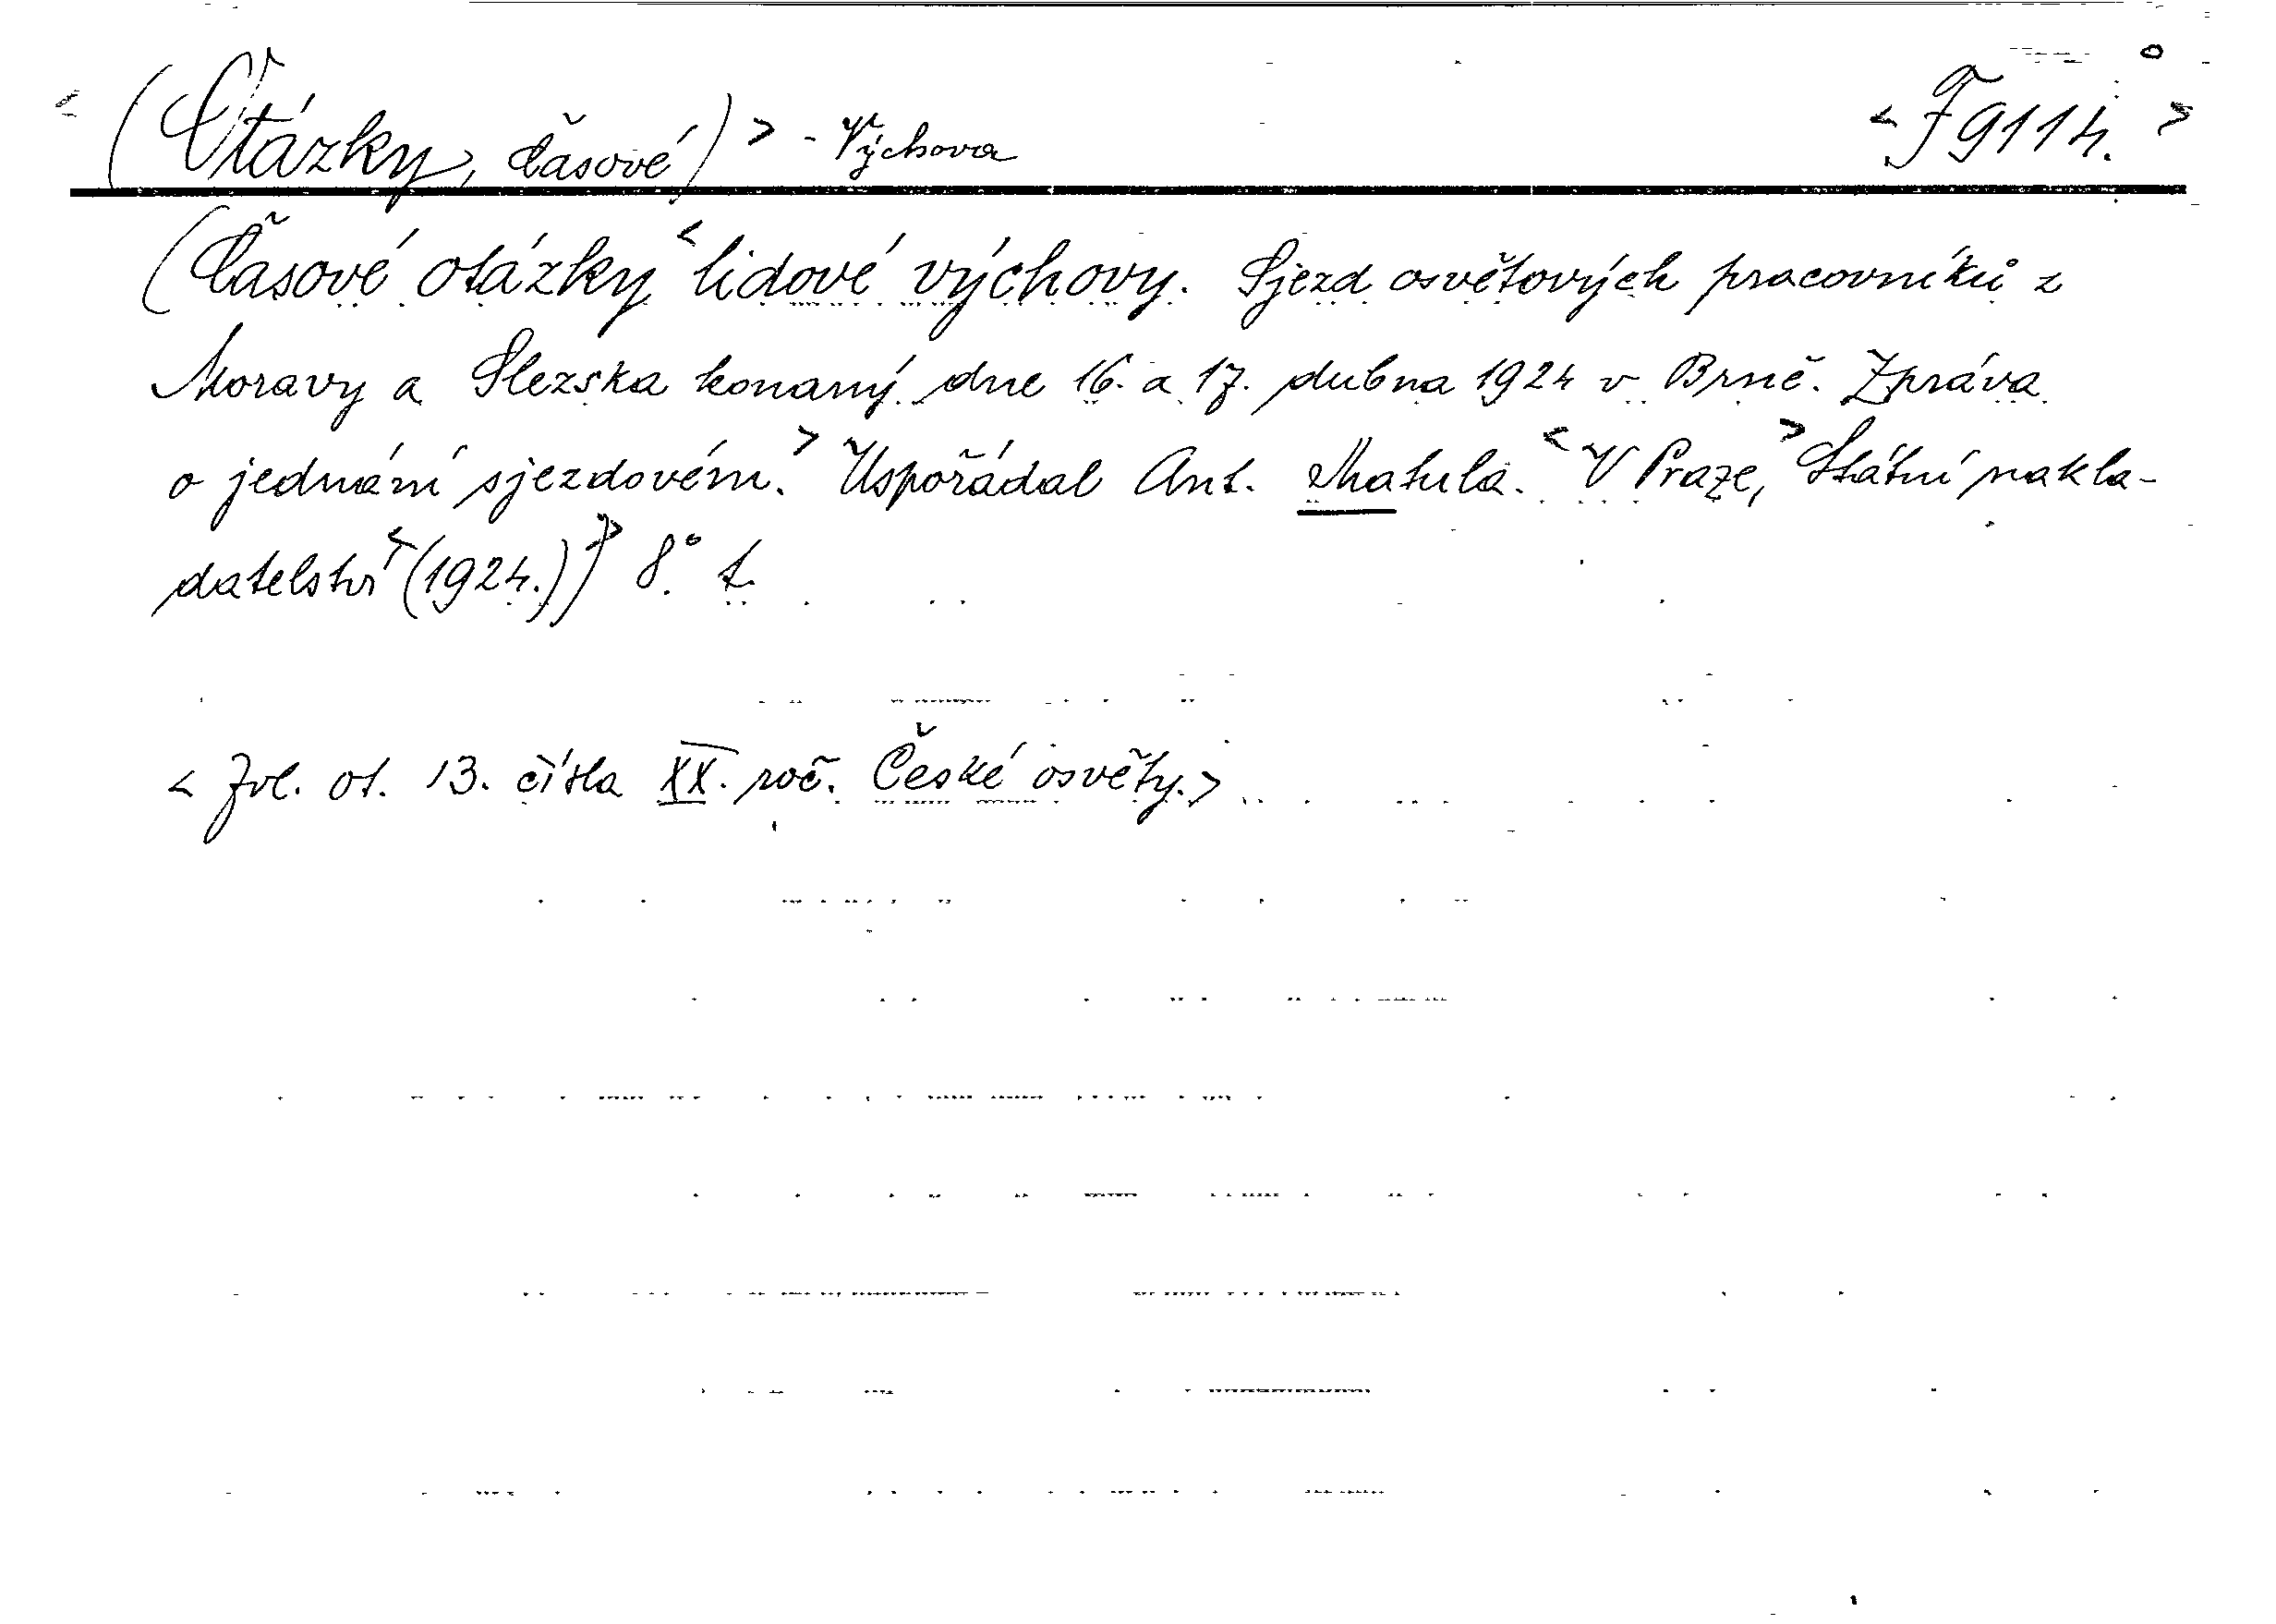 <(Otázky, časové)> - Výchova <F 9114.>
(Časové otázky <lidové výchovy. Sjezd osvětových pracovníků z
Moravy a Slezska konaný dne 16. a 17. dubna 1924 v Brně. Zpráva
o jednání sjezdovém.> Uspořádal Ant. Matula. <V Praze,> Státní nakla-
datelství <(1924.))> 8° t.
<Zvl. ot. 13. čísla XX. roč. České osvěty.>